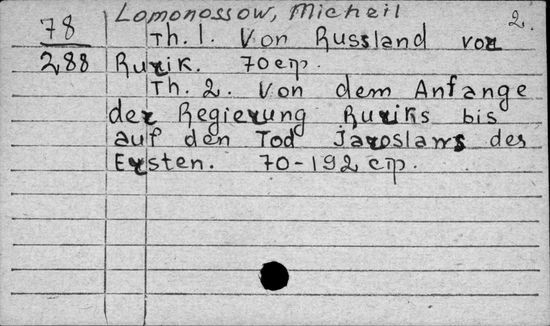 Lomonossow, Micheil 2.
78 Th. 1. Von Russland vor
288 Rurik. 70 стр.
Th. 2. Von dem Anfange
der Regierung Ruriks bis
auf den Tod Jaroslaws des
Ersten. 70-192 стр.